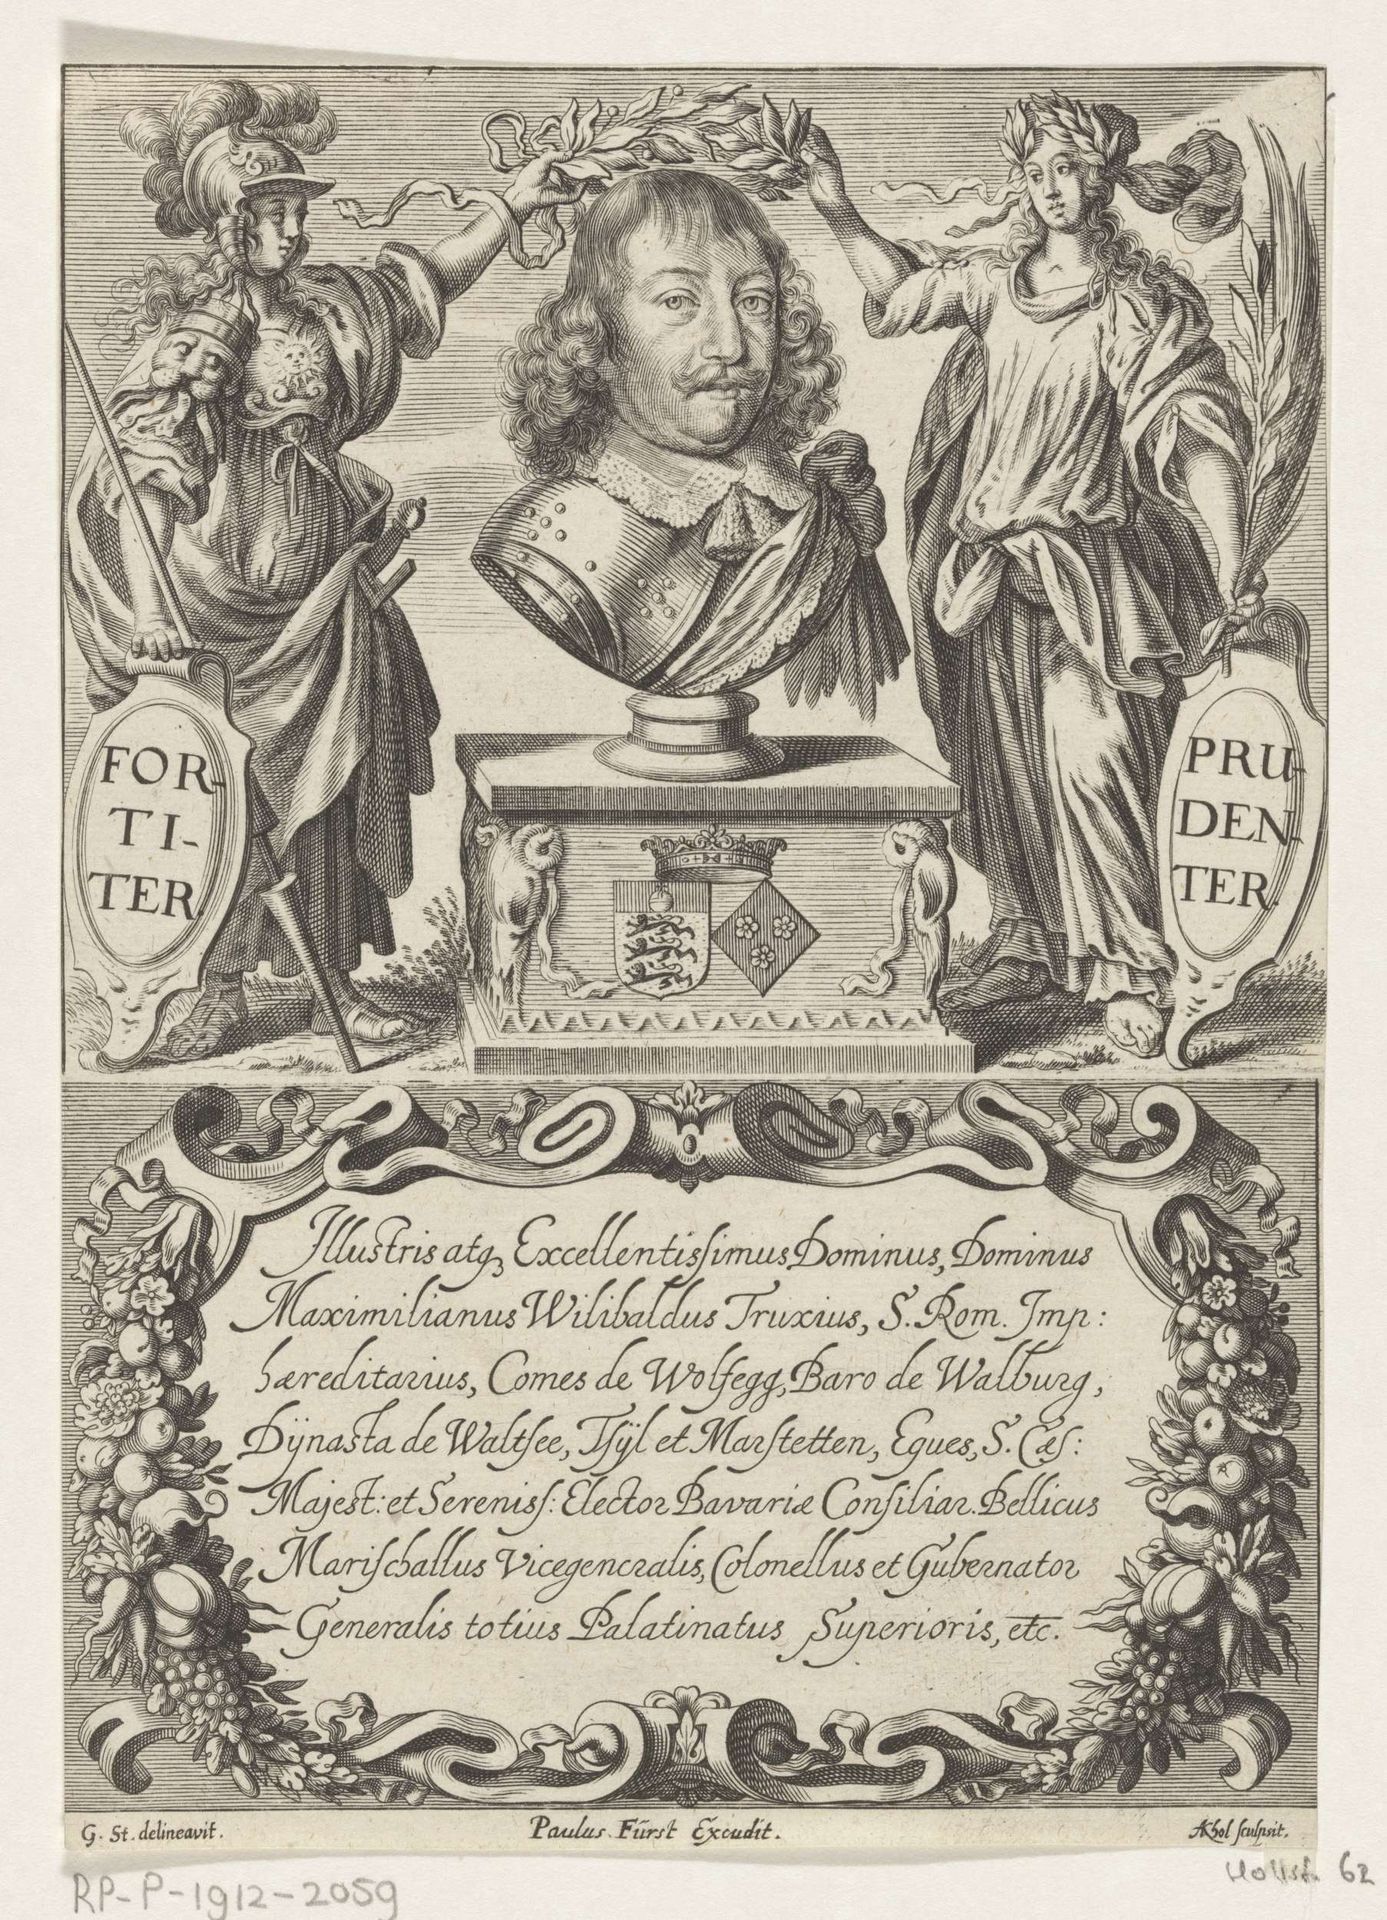 FOR-
TI-
TER.
PRU-
DEN-
TER.
Illustris atq₃ Excellentissimus Dominus, Dominus
Maximilianus Wilibaldus Truxius, S. Rom. Imp:
hæreditarius, Comes de Wolfegg, Baro de Walburg,
Dÿnasta de Waltsee, Tsÿl et Marstetten, Eques, S. Cæs:
Majest: et Sereniss: Elector Bavariæ Consiliar. Bellicus
Marischallus Vicegeneralis, Colonellus et Gubernator
Generalis totius Palatinatus Superioris, etc.
G. St. delineavit.
Paulus Fürst Excudit.
AKhol sculpsit.
Hollst. 62
RP-P-1912-2059